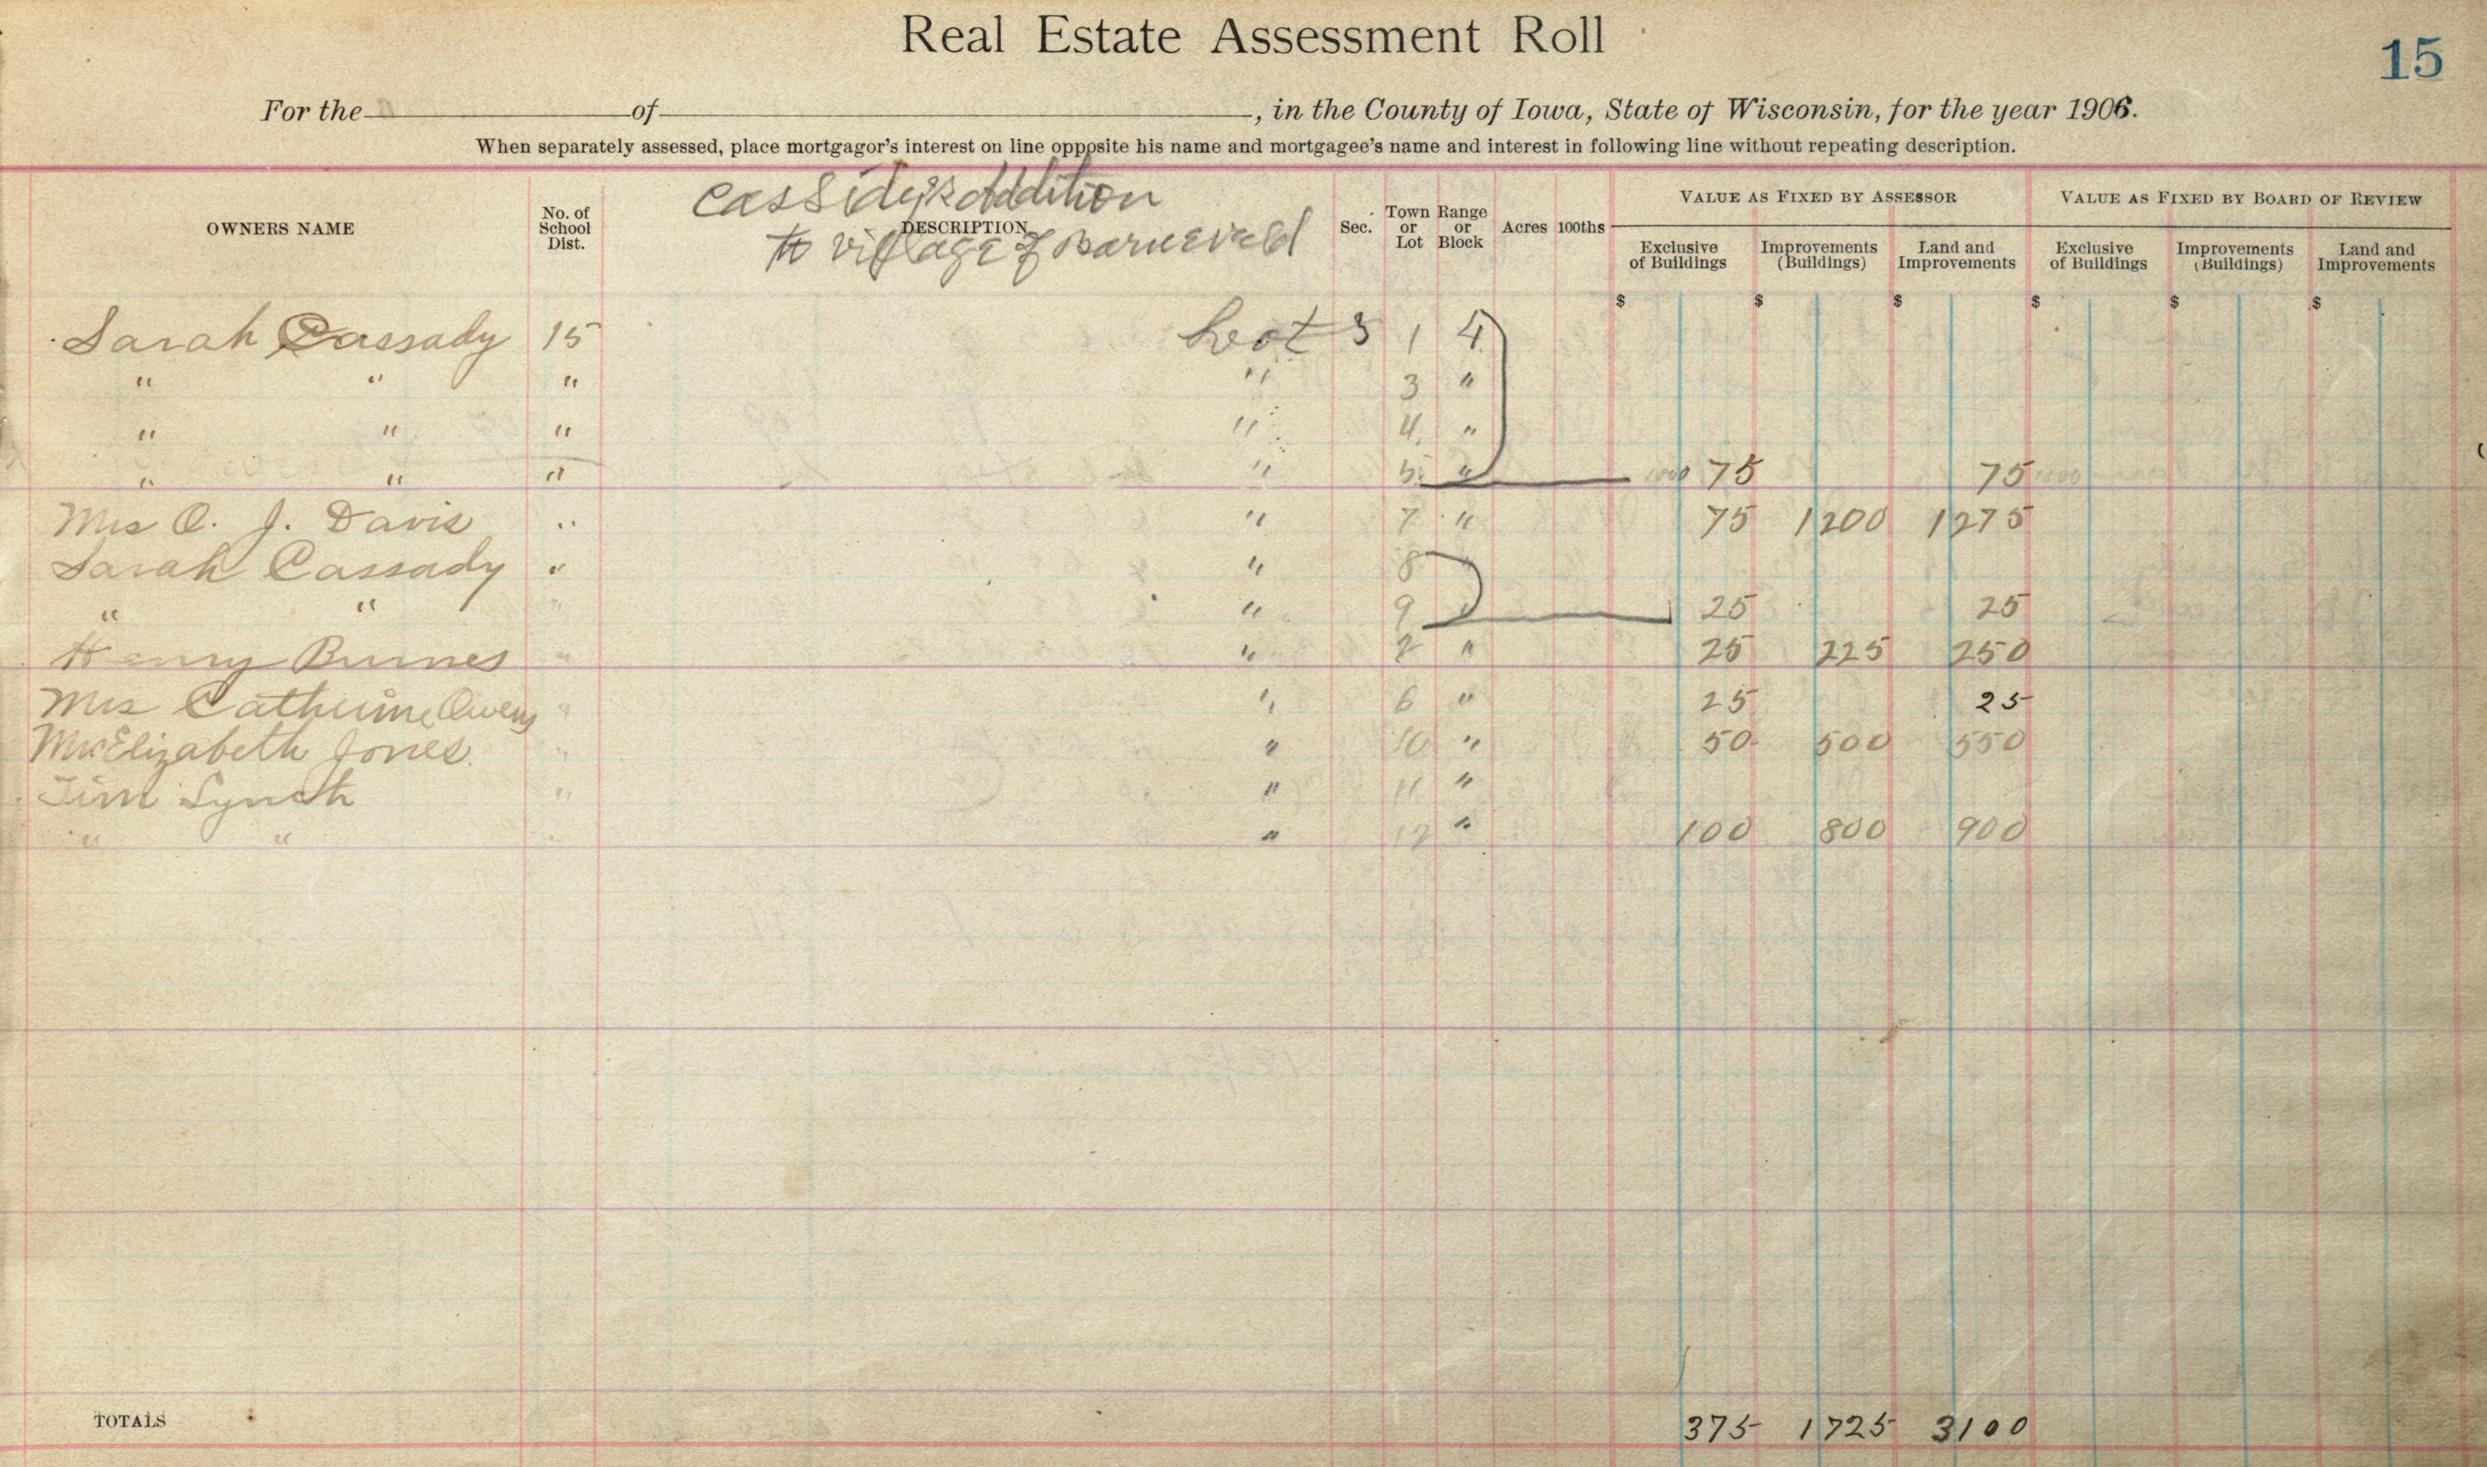 Real Estate Assessment Roll
15
For the of , in the County of Iowa, State of Wisconsin, for the year 1906.
When separately assessed, place mortgagor's interest on line opposite his name and mortgagee's name and interest in following line without repeating description.
Cassidy's Addition
to village of Barneveld
OWNERS NAME No. of School Dist. DESCRIPTION Sec. Town or Lot Range or Block Acres 100ths VALUE AS FIXED BY ASSESSOR VALUE AS FIXED BY BOARD OF REVIEW
Exclusive of Buildings Improvements (Buildings) Land and Improvements Exclusive of Buildings Improvements (Buildings) Land and Improvements
$ $ $ $ $ $
Sarah Cassady 15 Lot s 1 4
" " " " 3 "
" " " " 4 "
" " " " 5 " 75 75
Mrs O. J. Davis " " 7 " 75 1200 1275
Sarah Cassady " " 8
" " " " 9 " 25 25
Henry Burnes " " 2 " 25 225 250
Mrs Catherine Owens " " 6 " 25 25
Mrs Elizabeth Jones " " 10 " 50 500 550
Tim Lynch " " 11 "
" " " " 12 " 100 800 900
TOTALS 375 1725 3100